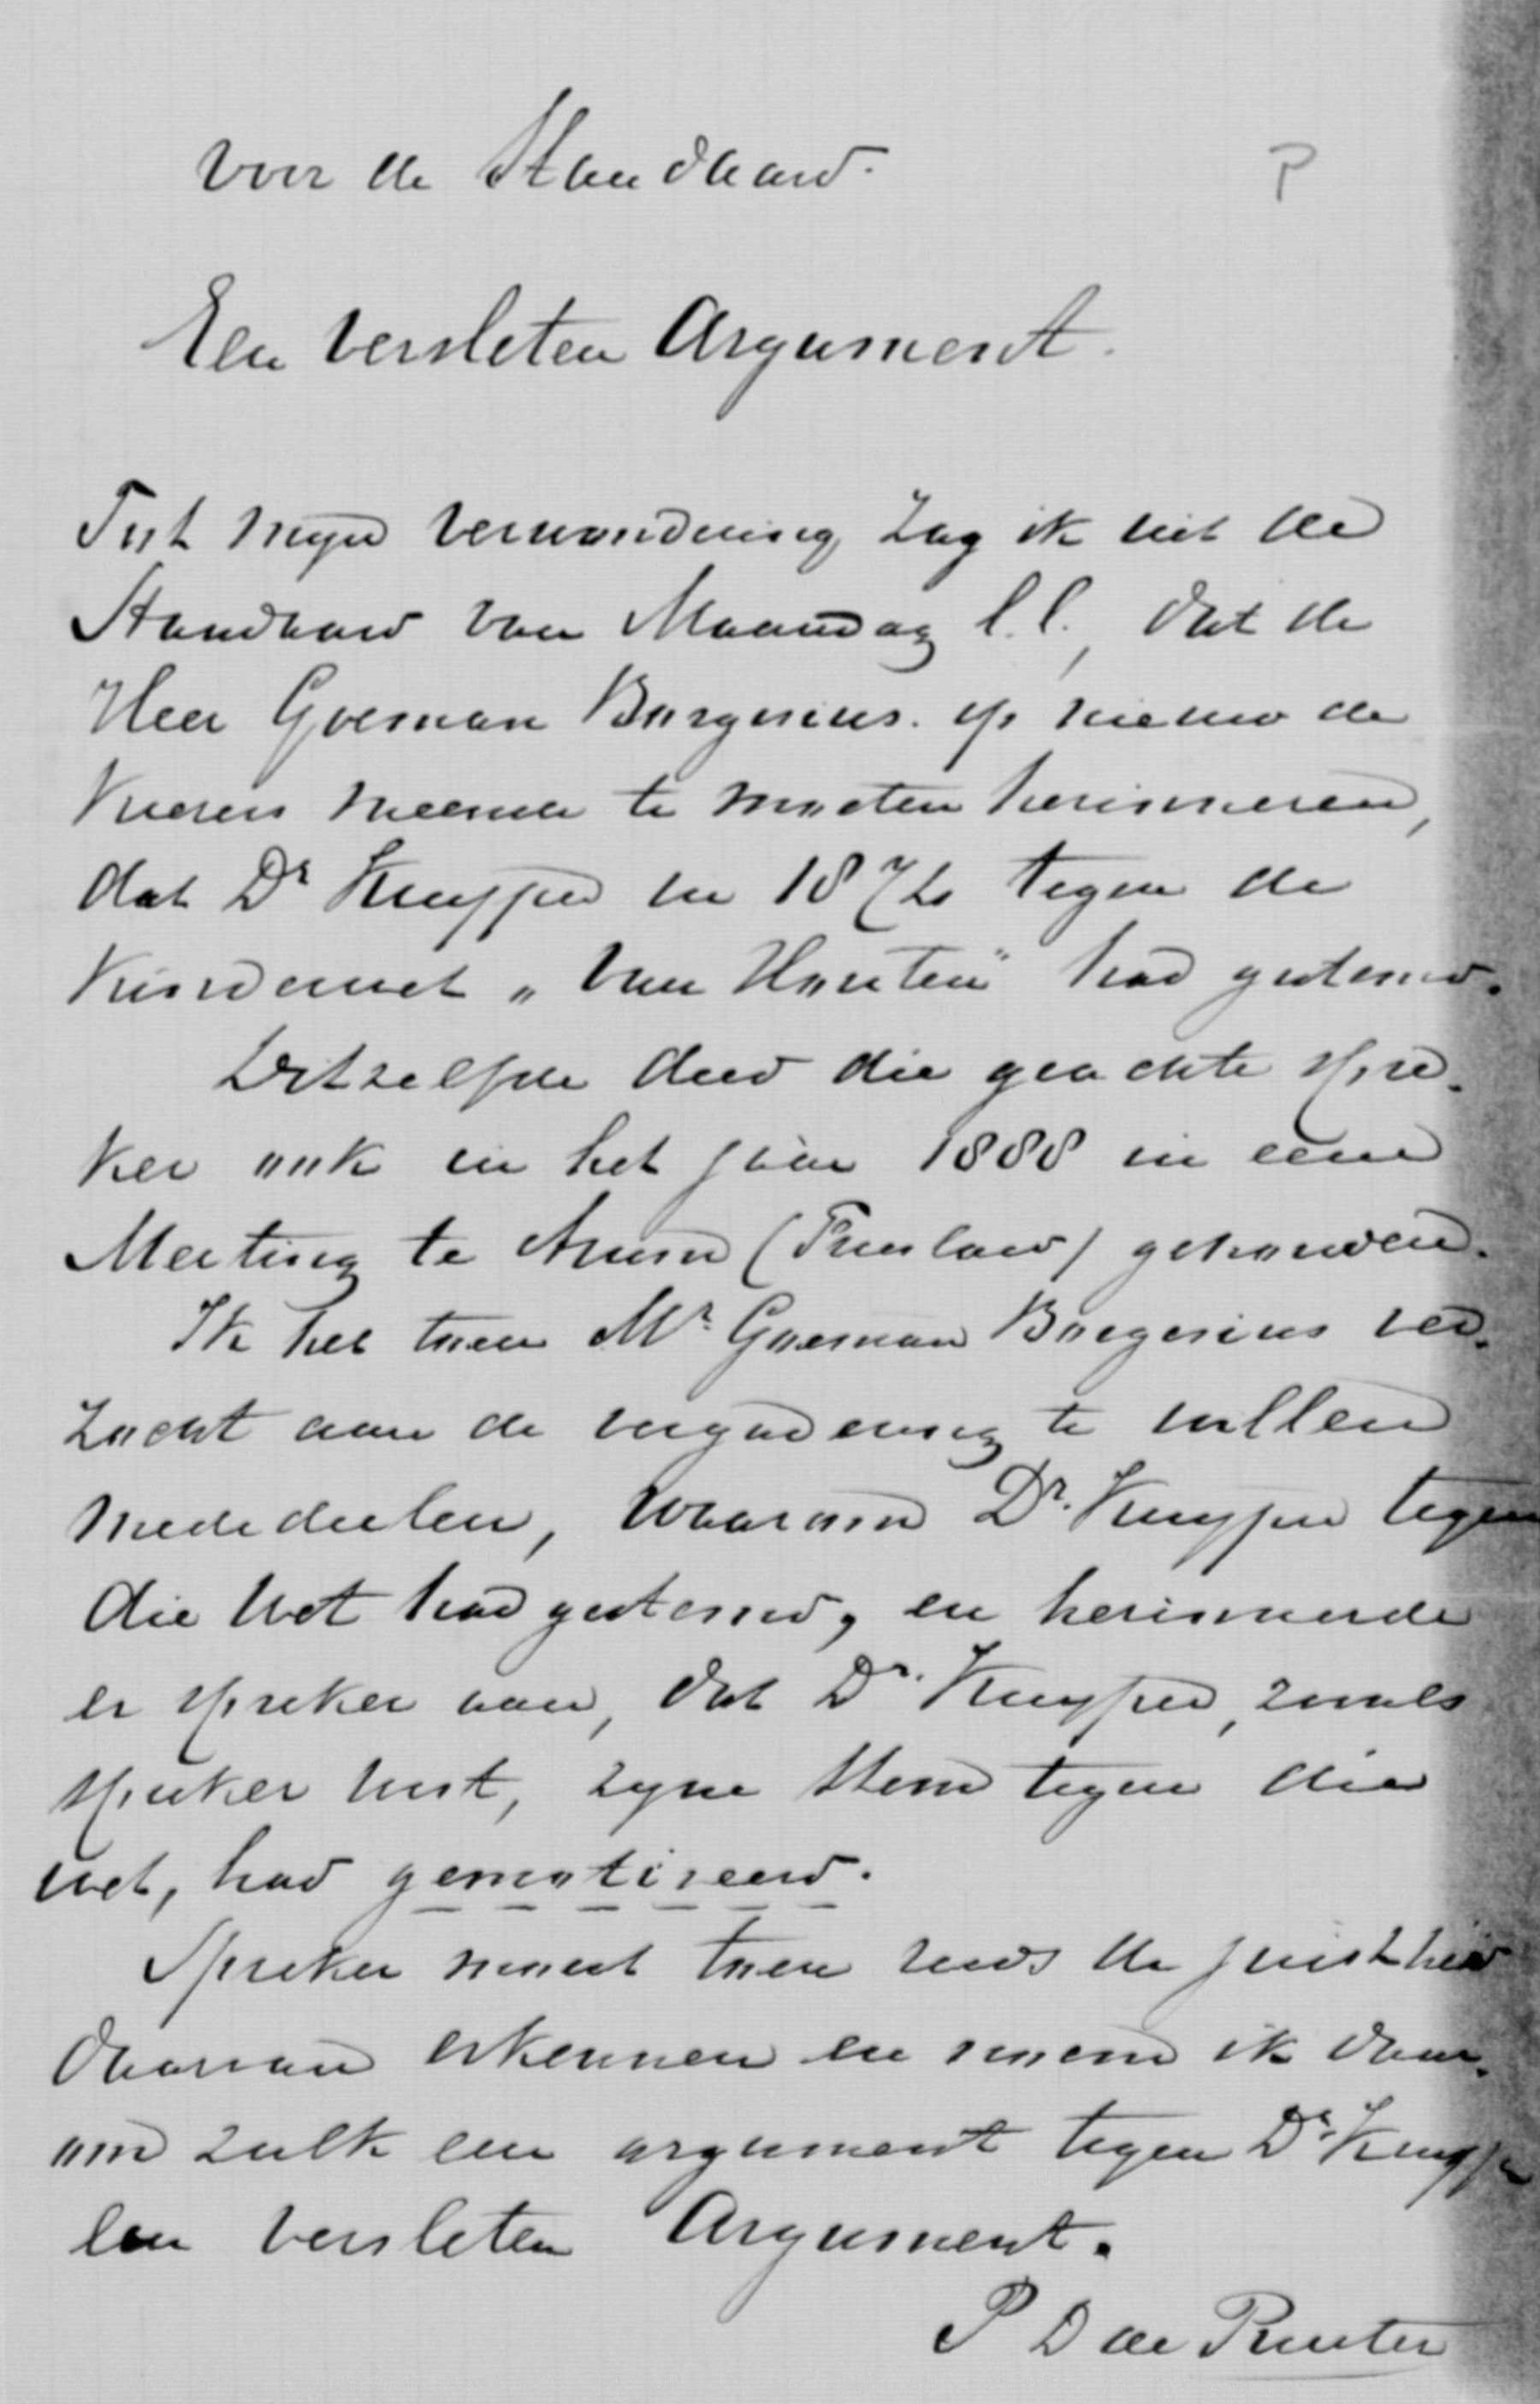 voor de Standaard. P
Een versleten Argument.
Tot mijn verwondering zag ik uit de
Standaard van Maandag l.l., dat de
Heer Goeman Borgesius. op nieuw de
Kiezers meende te moeten herinneren,
dat Dr Kuyper in 1874 tegen de
Kinderwet „van Houten" had gestemd.
Ditzelfde deed die geachte spre-
ker ook in het jaar 1888 in eene
Meeting te Arum (Friesland) gehouden.
Ik heb toen Mr. Goeman Borgesius ver-
zocht aan de vergadering te willen
mededeelen, waarom Dr. Kuyper tegen
die Wet had gestemd, en herinnerde
er spreker aan, dat Dr. Kuyper, zooals
spreker wist, zyne stem tegen die
wet, had gemotiveerd.
Spreker moest toen reeds de juistheid
daarvan erkennen en noem ik daar-
om zulk een argument tegen Dr. Kuyper
een versleten Argument.
P D de Ruiter